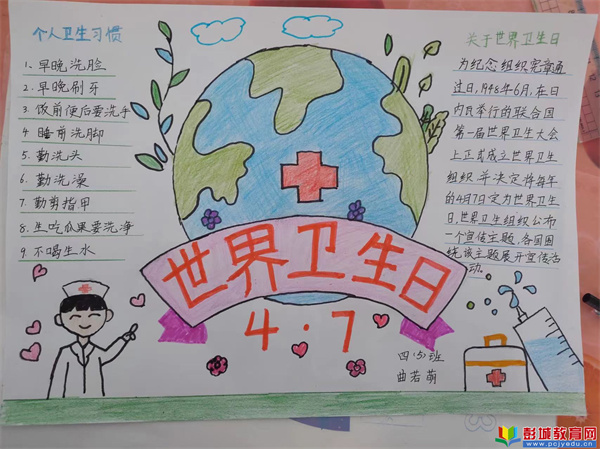 个人卫生习惯
1、早晚洗脸
2、早晚刷牙
3、饭前便后要洗手
4 睡前洗脚
5、勤洗头
6、勤洗澡
7、勤剪指甲
8、生吃瓜果要洗净
9、不喝生水
世界卫生日
4·7
关于世界卫生日
为纪念组织宪章通
过日,1948年6月,在日
内瓦举行的联合国
第一届世界卫生大会
上正式成立世界卫生
组织并决定将每年
的4月7日定为世界卫生
日,世界卫生组织公布
一个宣传主题,各国围
绕该主题展开宣传活
动。
四·5班
曲若萌
彭城教育网
www.pcjyedu.cn